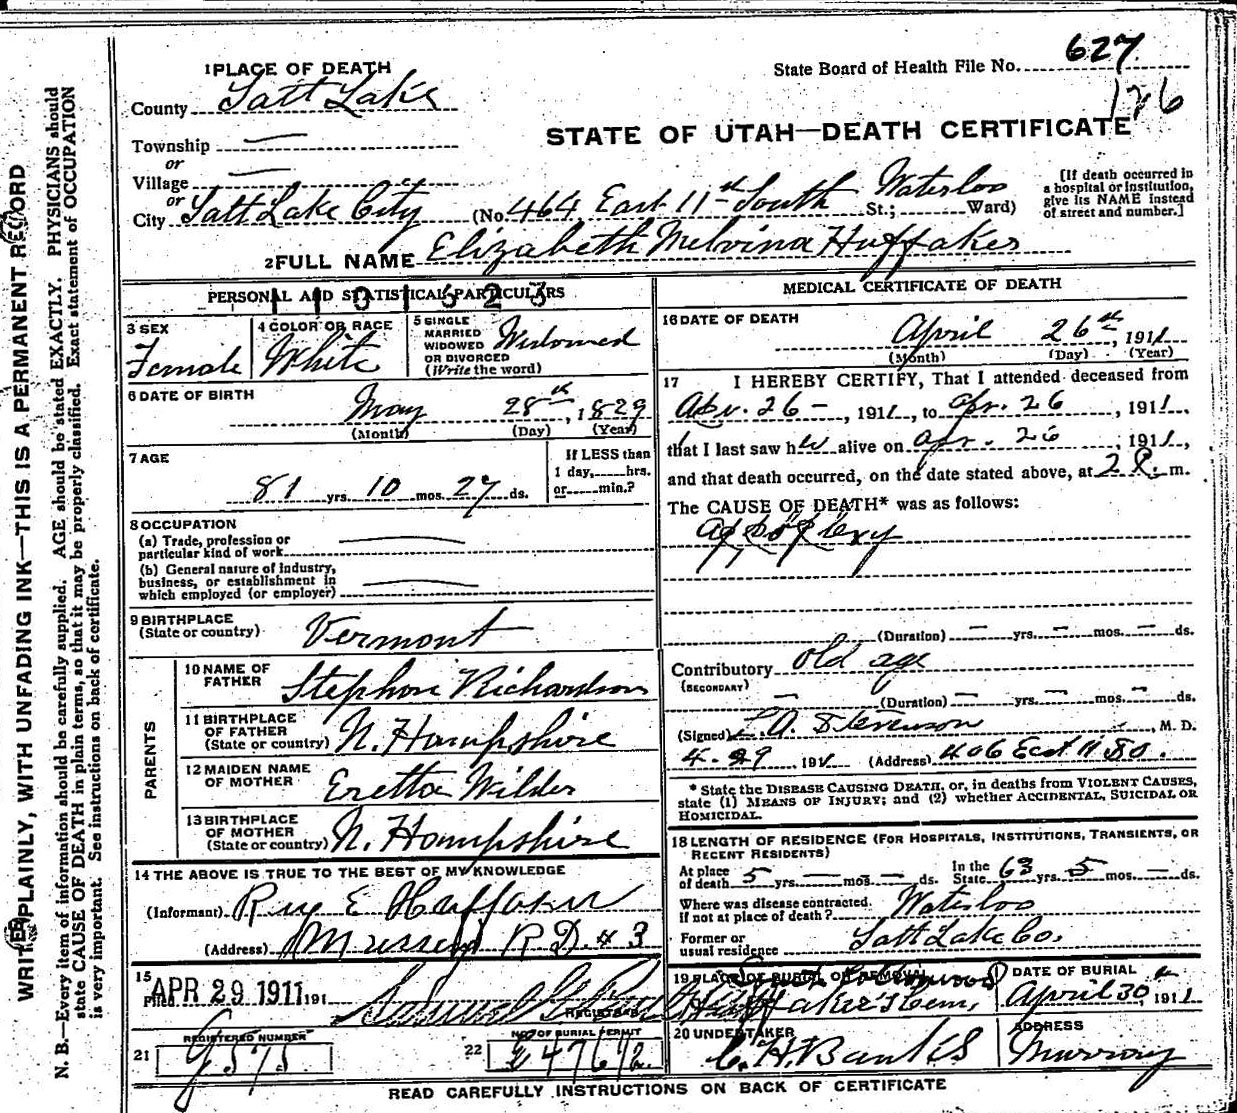 WRITE PLAINLY, WITH UNFADING INK—THIS IS A PERMANENT RECORD
N. B.—Every item of information should be carefully supplied. AGE should be stated EXACTLY. PHYSICIANS should
state CAUSE OF DEATH in plain terms, so that it may be properly classified. Exact statement of OCCUPATION
is very important. See instructions on back of certificate.
1 PLACE OF DEATH
State Board of Health File No. 627
186
County Salt Lake
STATE OF UTAH—DEATH CERTIFICATE
Township —
or
Village —
or
City Salt Lake City (No. 464 East 11th South St.; Waterloo Ward)
[If death occurred in
a hospital or institution,
give its NAME instead
of street and number.]
2 FULL NAME Elizabeth Melvina Huffaker
PERSONAL AND STATISTICAL PARTICULARS
3 SEX
Female
4 COLOR OR RACE
White
5 SINGLE
MARRIED
WIDOWED
OR DIVORCED
(Write the word)
Widowed
6 DATE OF BIRTH
May 28th, 1829
(Month) (Day) (Year)
7 AGE
81 yrs. 10 mos. 27 ds.
If LESS than
1 day, hrs.
or min.?
8 OCCUPATION
(a) Trade, profession or
particular kind of work —
(b) General nature of industry,
business, or establishment in
which employed (or employer) —
9 BIRTHPLACE
(State or country) Vermont
PARENTS
10 NAME OF
FATHER Stephen Richardson
11 BIRTHPLACE
OF FATHER
(State or country) N. Hampshire
12 MAIDEN NAME
OF MOTHER Eretta Wilder
13 BIRTHPLACE
OF MOTHER
(State or country) N. Hampshire
14 THE ABOVE IS TRUE TO THE BEST OF MY KNOWLEDGE
(Informant) Roy E Huffaker
(Address) R D. # 3
15
Filed APR 29 1911 191
Samuel G. Paul
REGISTRAR
REGISTERED NUMBER
21 G 575
NO. OF BURIAL PERMIT
22
MEDICAL CERTIFICATE OF DEATH
16 DATE OF DEATH
April 26th, 1911
(Month) (Day) (Year)
17 I HEREBY CERTIFY, That I attended deceased from
Apr. 26 —, 1911, to Apr. 26, 1911,
that I last saw her alive on Apr. 26, 1911,
and that death occurred, on the date stated above, at 2 P. m.
The CAUSE OF DEATH* was as follows:
Appoplexy
(Duration) — yrs. — mos. — ds.
Contributory old age
(SECONDARY)
— (Duration) — yrs. — mos. — ds.
(Signed) L. A. Stevenson, M. D.
4.29 1911 (Address) 406 East 11 So.
* State the DISEASE CAUSING DEATH, or, in deaths from VIOLENT CAUSES,
state (1) MEANS OF INJURY; and (2) whether ACCIDENTAL, SUICIDAL OR
HOMICIDAL.
18 LENGTH OF RESIDENCE (FOR HOSPITALS, INSTITUTIONS, TRANSIENTS, OR
RECENT RESIDENTS)
At place
of death 5 yrs. — mos. — ds.
In the
State 63 yrs. 5 mos. — ds.
Where was disease contracted.
if not at place of death? Waterloo
Former or
usual residence Salt Lake Co.
19 PLACE OF BURIAL OR REMOVAL
South Cottonwood
Huffaker's Cem.
DATE OF BURIAL
April 30 1911
20 UNDERTAKER
C. H. Banks
ADDRESS
Murray
READ CAREFULLY INSTRUCTIONS ON BACK OF CERTIFICATE